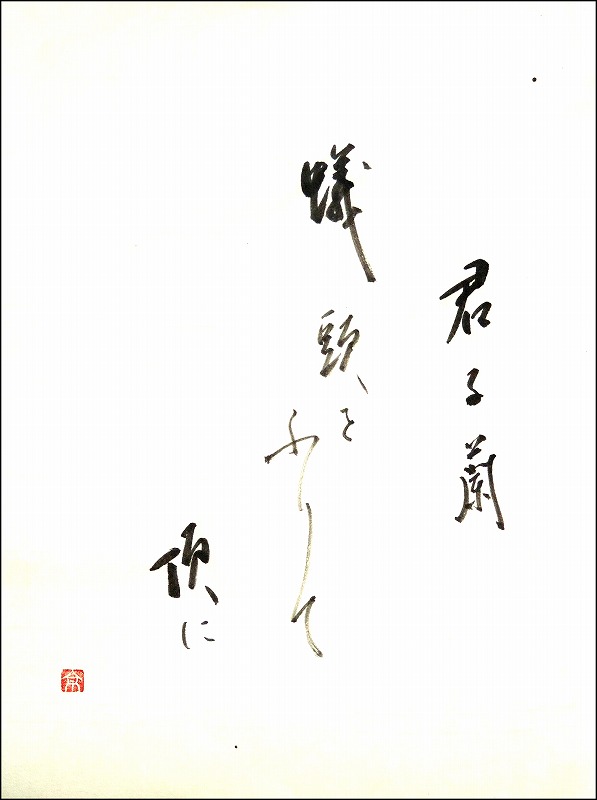 君子蘭
蟻頭をふりて
頂に